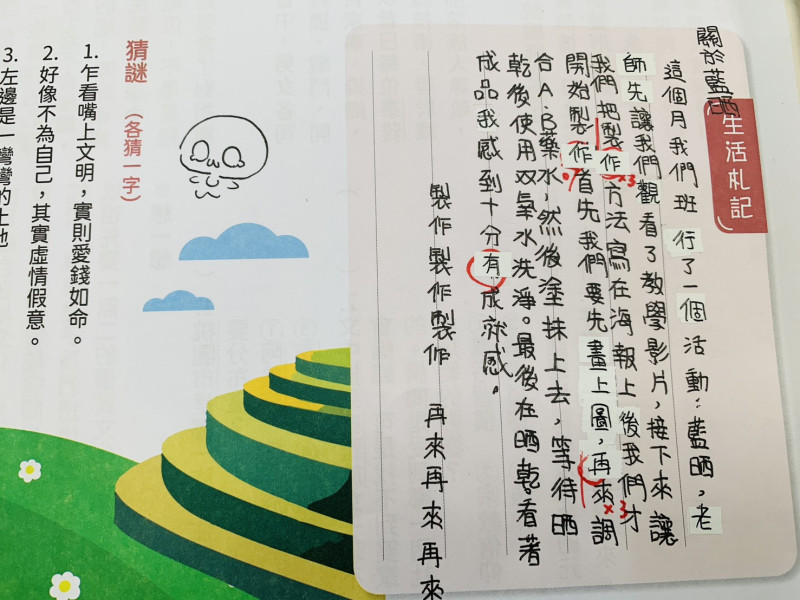 關於藍晒
生活札記
這個月我們班 行了一個活動:藍晒,老
師先讓我們觀看了教學影片,接下來讓
我們把製作方法寫在海報上後我們才
開始製作首先我們要先畫上圖,再來調
合A.B藥水,然後塗抹上去,等待晒
乾後使用双氧水洗淨。最後在晒乾。看著
成品我感到十分有成就感。
×3
×3
製作製作製作 再來再來再來
猜謎(各猜一字)
1. 乍看嘴上文明,實則愛錢如命。
2. 好像不為自己,其實虛情假意。
3. 左邊是一彎彎的土地